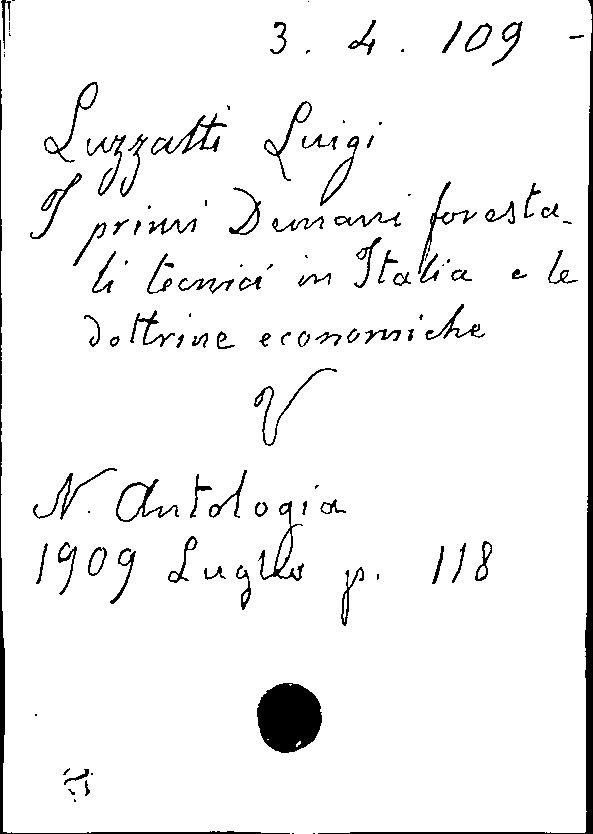 3. 4. 109 -
Luzzatti Luigi
I primi Demani foresta-
li tecnici in Italia e le
dottrine economiche
V
N. Antologia
1909 Luglio p. 118